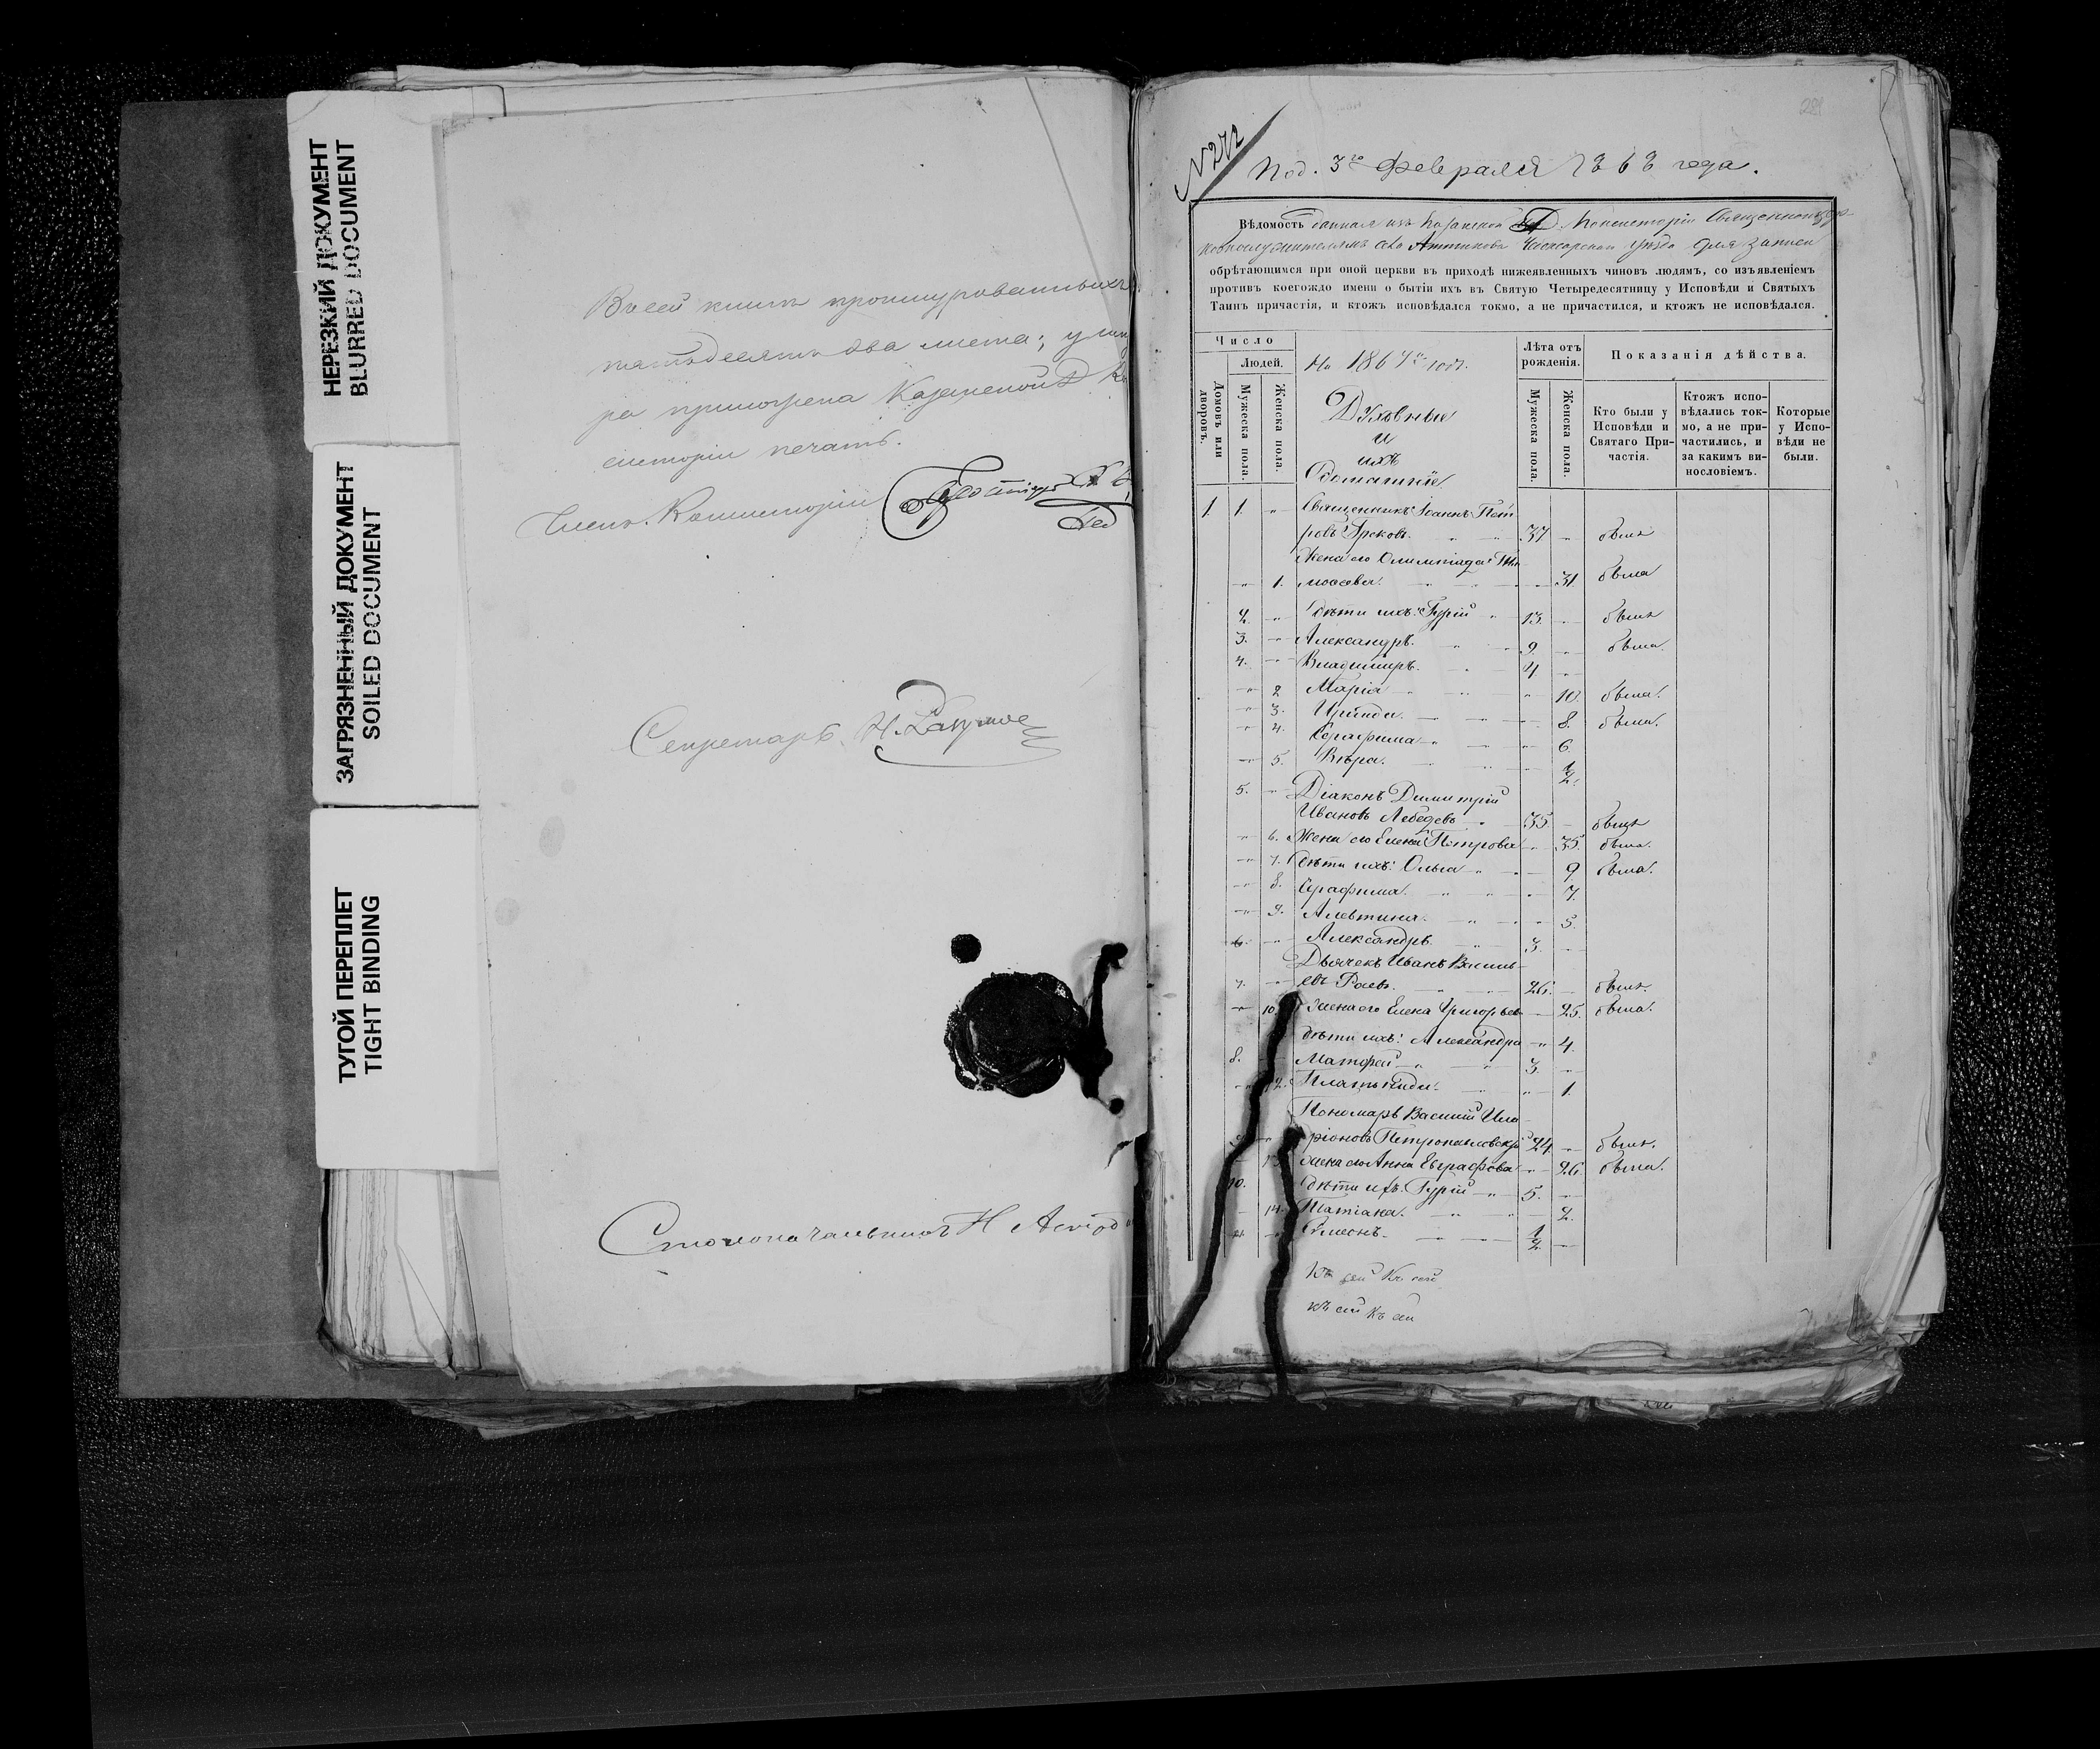 НЕРЕЗКИЙ ДОКУМЕНТ
BLURRED DOCUMENT
ЗАГРЯЗНЕННЫЙ ДОКУМЕНТ
SOILED DOCUMENT
ТУГОЙ ПЕРЕПЛЕТ
TIGHT BINDING
В сей книге прошнурованныхъ
пятьдесятъ два листа; у шну
ра приложена Казанской Д. Ко
систоріи печать.
Членъ Консисторіи
Секретарь Н.
Столоначальникъ Н
281
№272
Под. 3го Февраля 1868 года.
Вѣдомость данная изъ Казанской Д. Консисторіи Священноцер-
ковнослужителямъ села Аттикова Чебоксарскаго уѣзда для записи
обрѣтающимся при оной церкви въ приходѣ нижеявленныхъ чиновъ людямъ, со изъявленіемъ
противъ коегождо имени о бытіи ихъ въ Святую Четыредесятницу у Исповѣди и Святыхъ
Таинъ причастія, и ктожъ исповѣдался токмо, а не причастился, и ктожъ не исповѣдался.
Число
Людей.
Домовъ или дворовъ.
Мужеска пола.
Женска пола.
На 1867й годъ.
Духовные
и
ихъ
домашніе
Лѣта отъ рожденія.
Мужеска пола.
Женска пола.
Показанія дѣйства.
Кто были у Исповѣди и Святаго Причастія.
Ктожъ исповѣдались токмо, а не причастились, и за какимъ винословіемъ.
Которые у Исповѣди не были.
1. 1. " Священникъ Іоаннъ Пет-
ровъ . 37 " былъ
Жена его Олимпіада Ти-
" 1. моѳеева. " 31 была
2. " Дѣти ихъ: Гурій " 13. " былъ
3. " Александръ. " 9. " былъ
4. " Владиміръ. " 4 "
" 2 Марія " 10. была.
" 3. Ираида. " 8. была.
" 4. Серафима " 6.
" 5. Вѣра. " 1/2.
5. " Діаконъ Димитрій
Ивановъ Лебедевъ " 35 " былъ
" 6. Жена его Елена Петрова " 35. была.
" 7. Дѣти ихъ: Ольга " 9 была.
" 8. Серафима. " 7.
" 9. Алевтина. " 5.
6. " Александръ. " 3. "
Дьячекъ Иванъ Василь-
7. " евъ Раевъ. " 26. " былъ.
" 10. Жена его Елена Григорьев " 25. была.
дѣти ихъ: Александра " 4.
8. " Матѳей " 3. "
" 12. Платонида. " 1.
Пономарь Василій Ила-
9. " ріоновъ Петропавловскій 24 " былъ.
" 13. Жена его Анна Евграфова " 26. была.
10. Дѣти ихъ: Гурій " 5. "
" 14. Татіана. " 2.
" Симеонъ. " 1/2 "
Къ сей Къ сей
къ сей Къ сей